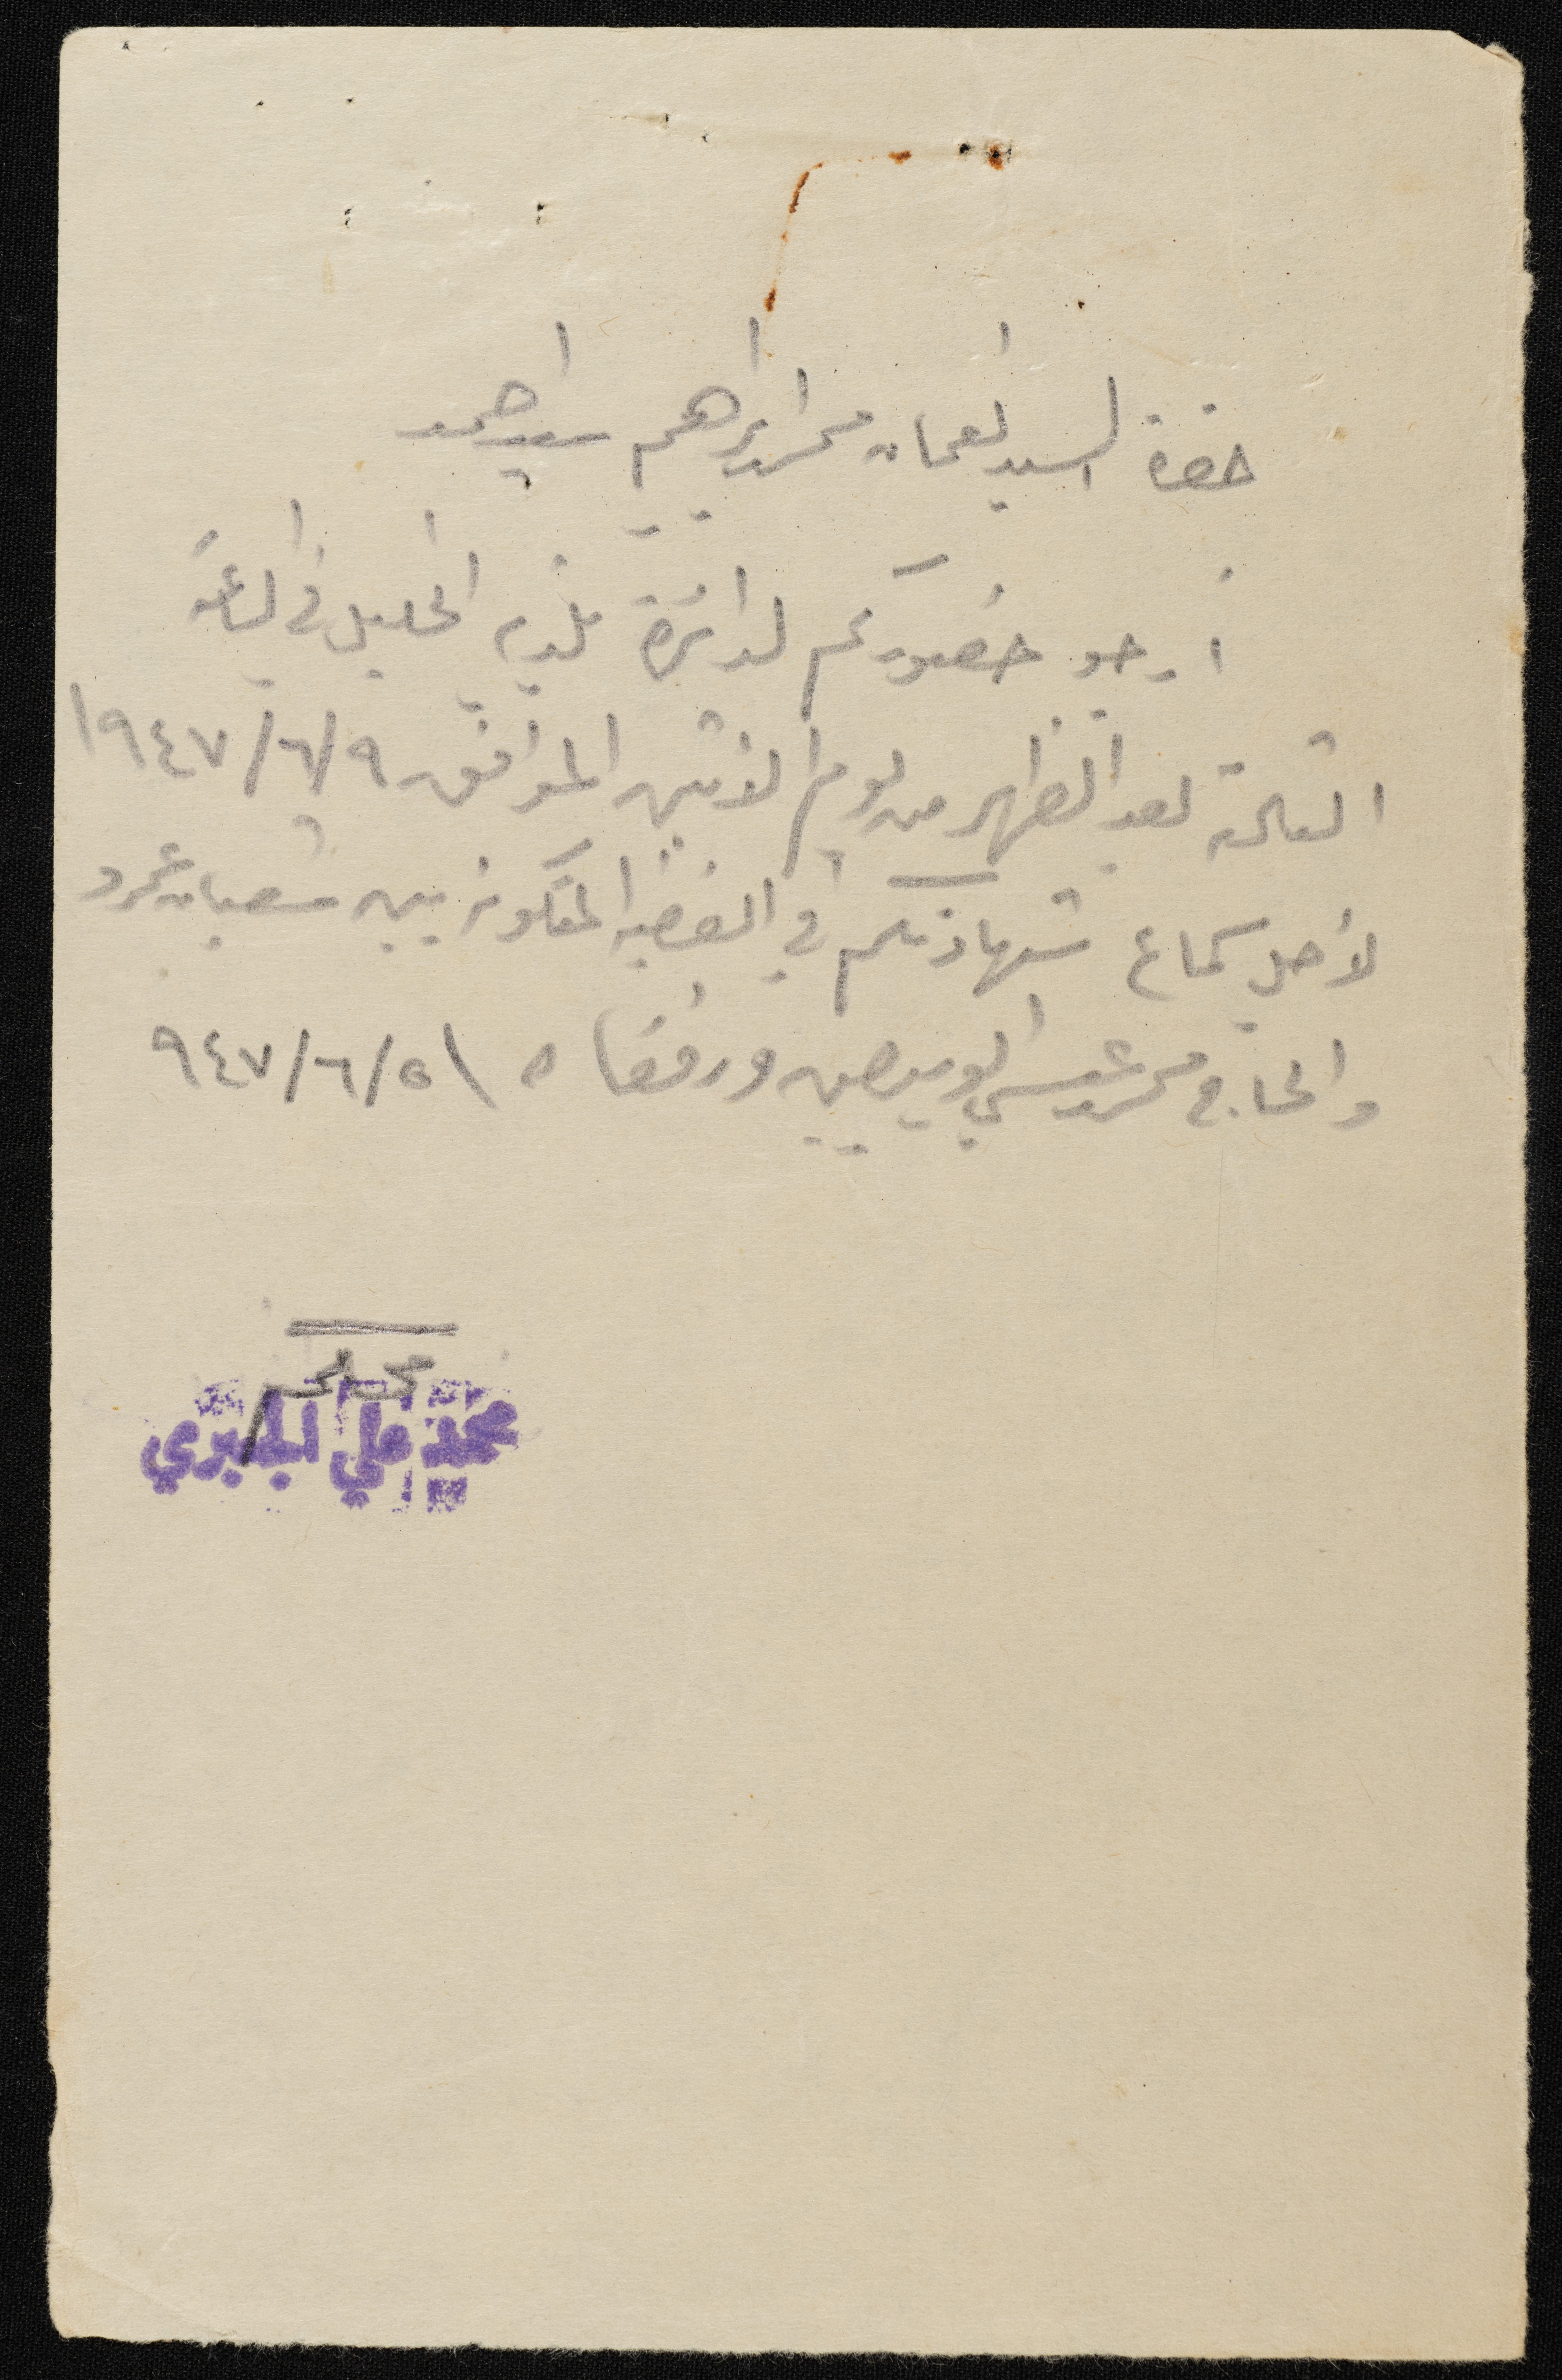 حضرة السيد نعمان محمد ابراهيم سيد احمد
أرجو حضوركم لدائرة بلدية الخليل في الساعة
الثالثة بعد الظهر من يوم الاثنين الموافق ٩/٦/١٩٤٧
لأجل سماع شهادتكم في القضية المتكونة بين شعبان عمرو
والحاج محمد عيسى ابو ميصيين ورفقاه ٥/٦/٩٤٧
محمد علي الجعبري